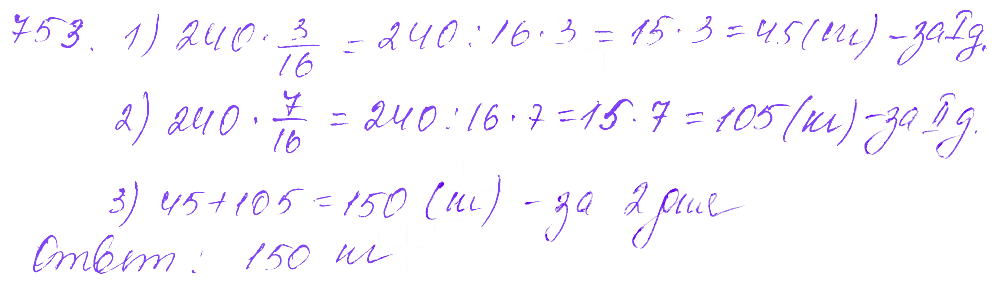 753. 1) 240 · 3/16 = 240 : 16 · 3 = 15 · 3 = 45 (т) – за I д.
2) 240 · 7/16 = 240 : 16 · 7 = 15 · 7 = 105 (т) – за II д.
3) 45 + 105 = 150 (т) – за 2 дня
Ответ: 150 т